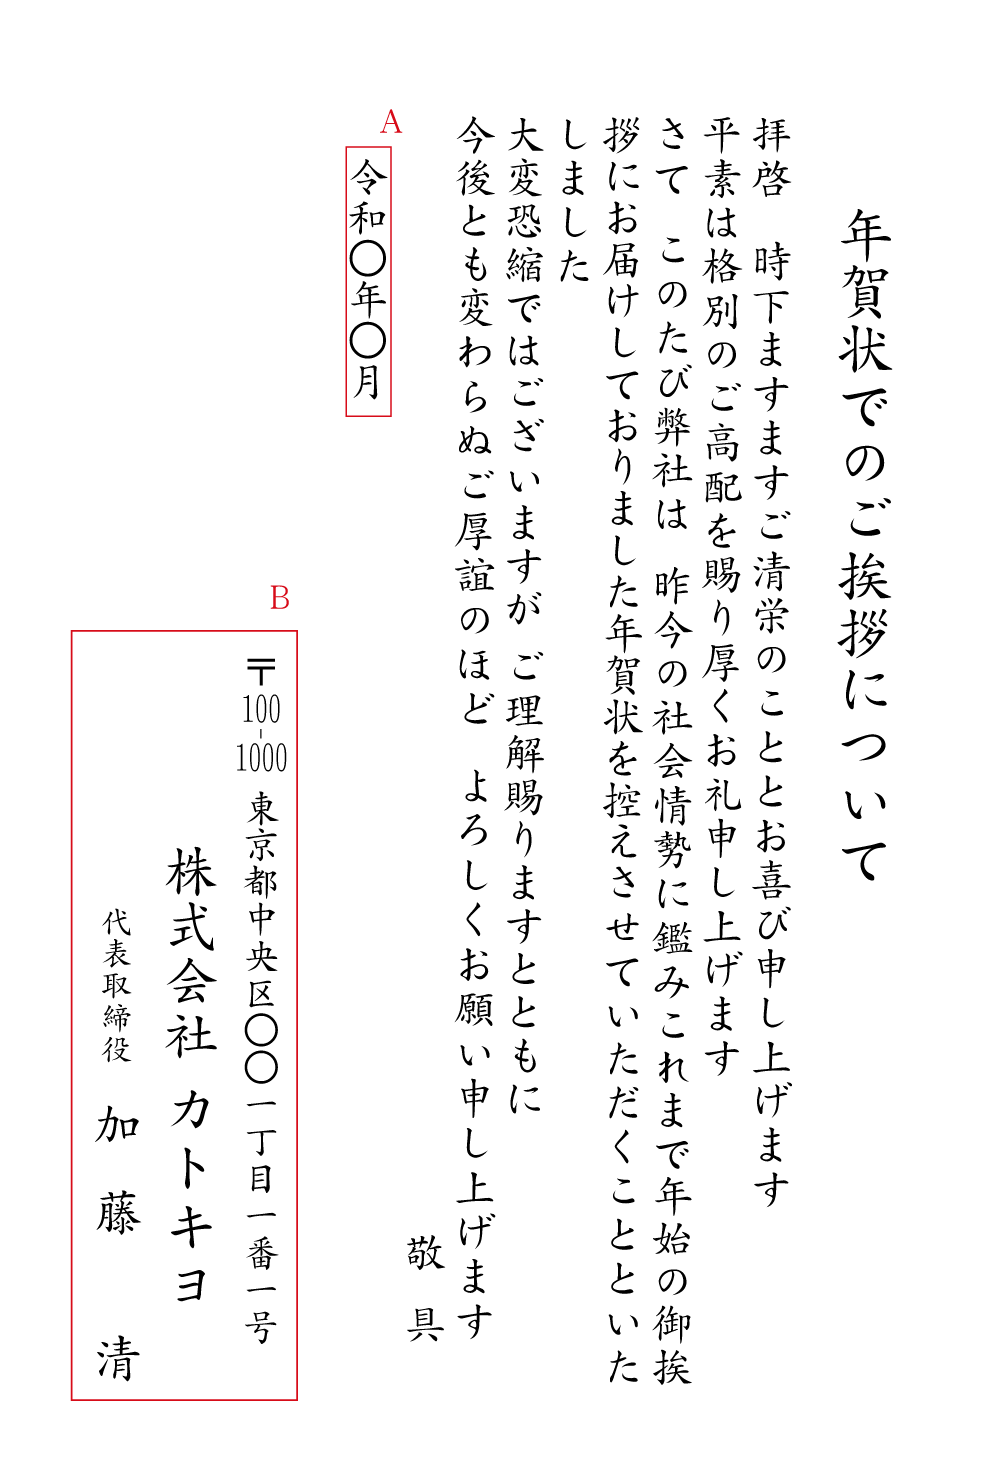 年賀状でのご挨拶について
拝啓　時下ますますご清栄のこととお喜び申し上げます
平素は格別のご高配を賜り厚くお礼申し上げます
さて このたび弊社は 昨今の社会情勢に鑑みこれまで年始の御挨
拶にお届けしておりました年賀状を控えさせていただくことといた
しました
大変恐縮ではございますが ご理解賜りますとともに
今後とも変わらぬご厚誼のほど　よろしくお願い申し上げます
敬具
A
令和〇年〇月
B
〒100-1000 東京都中央区〇〇一丁目一番一号
株式会社 カトキヨ
代表取締役 加藤 清